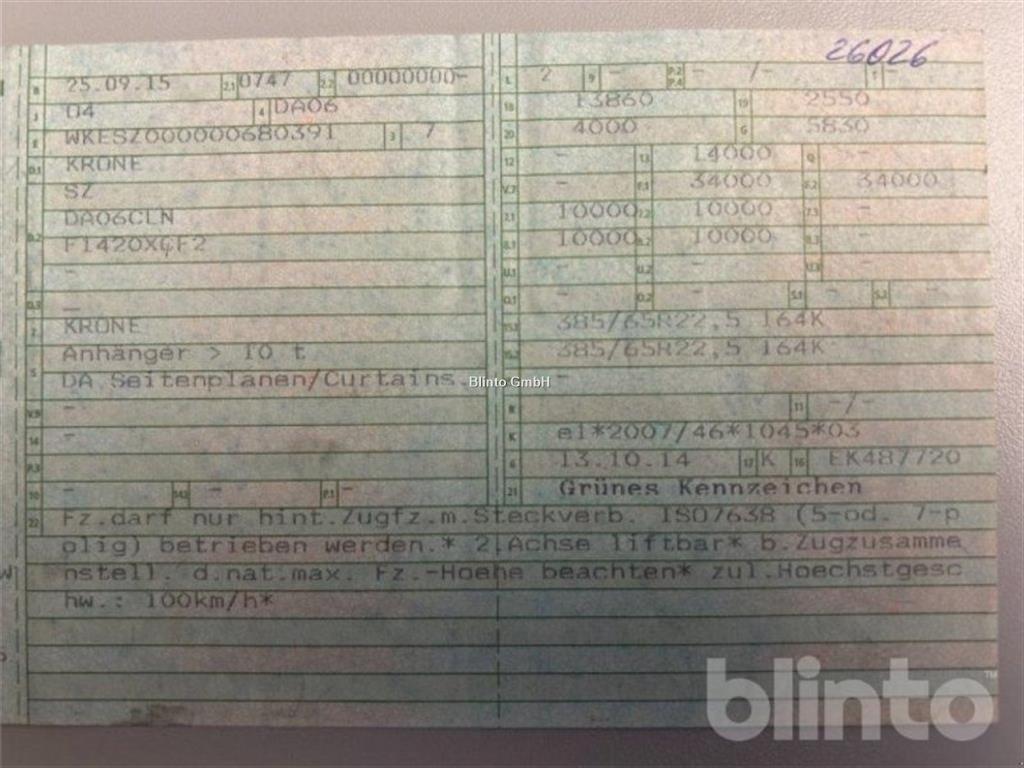 26026
B 25.09.15 2.1 0747 2.2 00000000-
J 04 4 DA06
E WKESZ000000680391 3 7
D.1 KRONE
SZ
DA06CLN
D.2 F1420XCF2
-
D.3 -
2 KRONE
Anhänger > 10 t
5 DA.Seitenplanen/Curtains.
V.9 -
14 -
P.3
10 - 14.1 - P.1 -
L 2 9 - P.2 P.4 - /- T -
18 13860 19 2550
20 4000 G 5830
12 - 13 14000 Q -
V.7 - F.1 34000 F.2 34000
7.1 10000 7.2 10000 7.3 -
8.1 10000 8.2 10000 8.3 -
U.1 - U.2 - U.3 -
O.1 - O.2 - S.1 - S.2 -
15.1 385/65R22,5 164K
15.2 385/65R22,5 164K
-
Blinto GmbH
R 11 -/-
K e1*2007/46*1045*03
6 13.10.14 17 K 16 EK487720
21 Grünes Kennzeichen
22 Fz.darf nur hint.Zugfz.m.Steckverb. ISO7638 (5-od. 7-p
olig) betrieben werden.* 2.Achse liftbar* b.Zugzusamme
nstell. d.nat.max. Fz.-Hoehe beachten* zul.Hoechstgesc
hw.: 100km/h*
blinto™